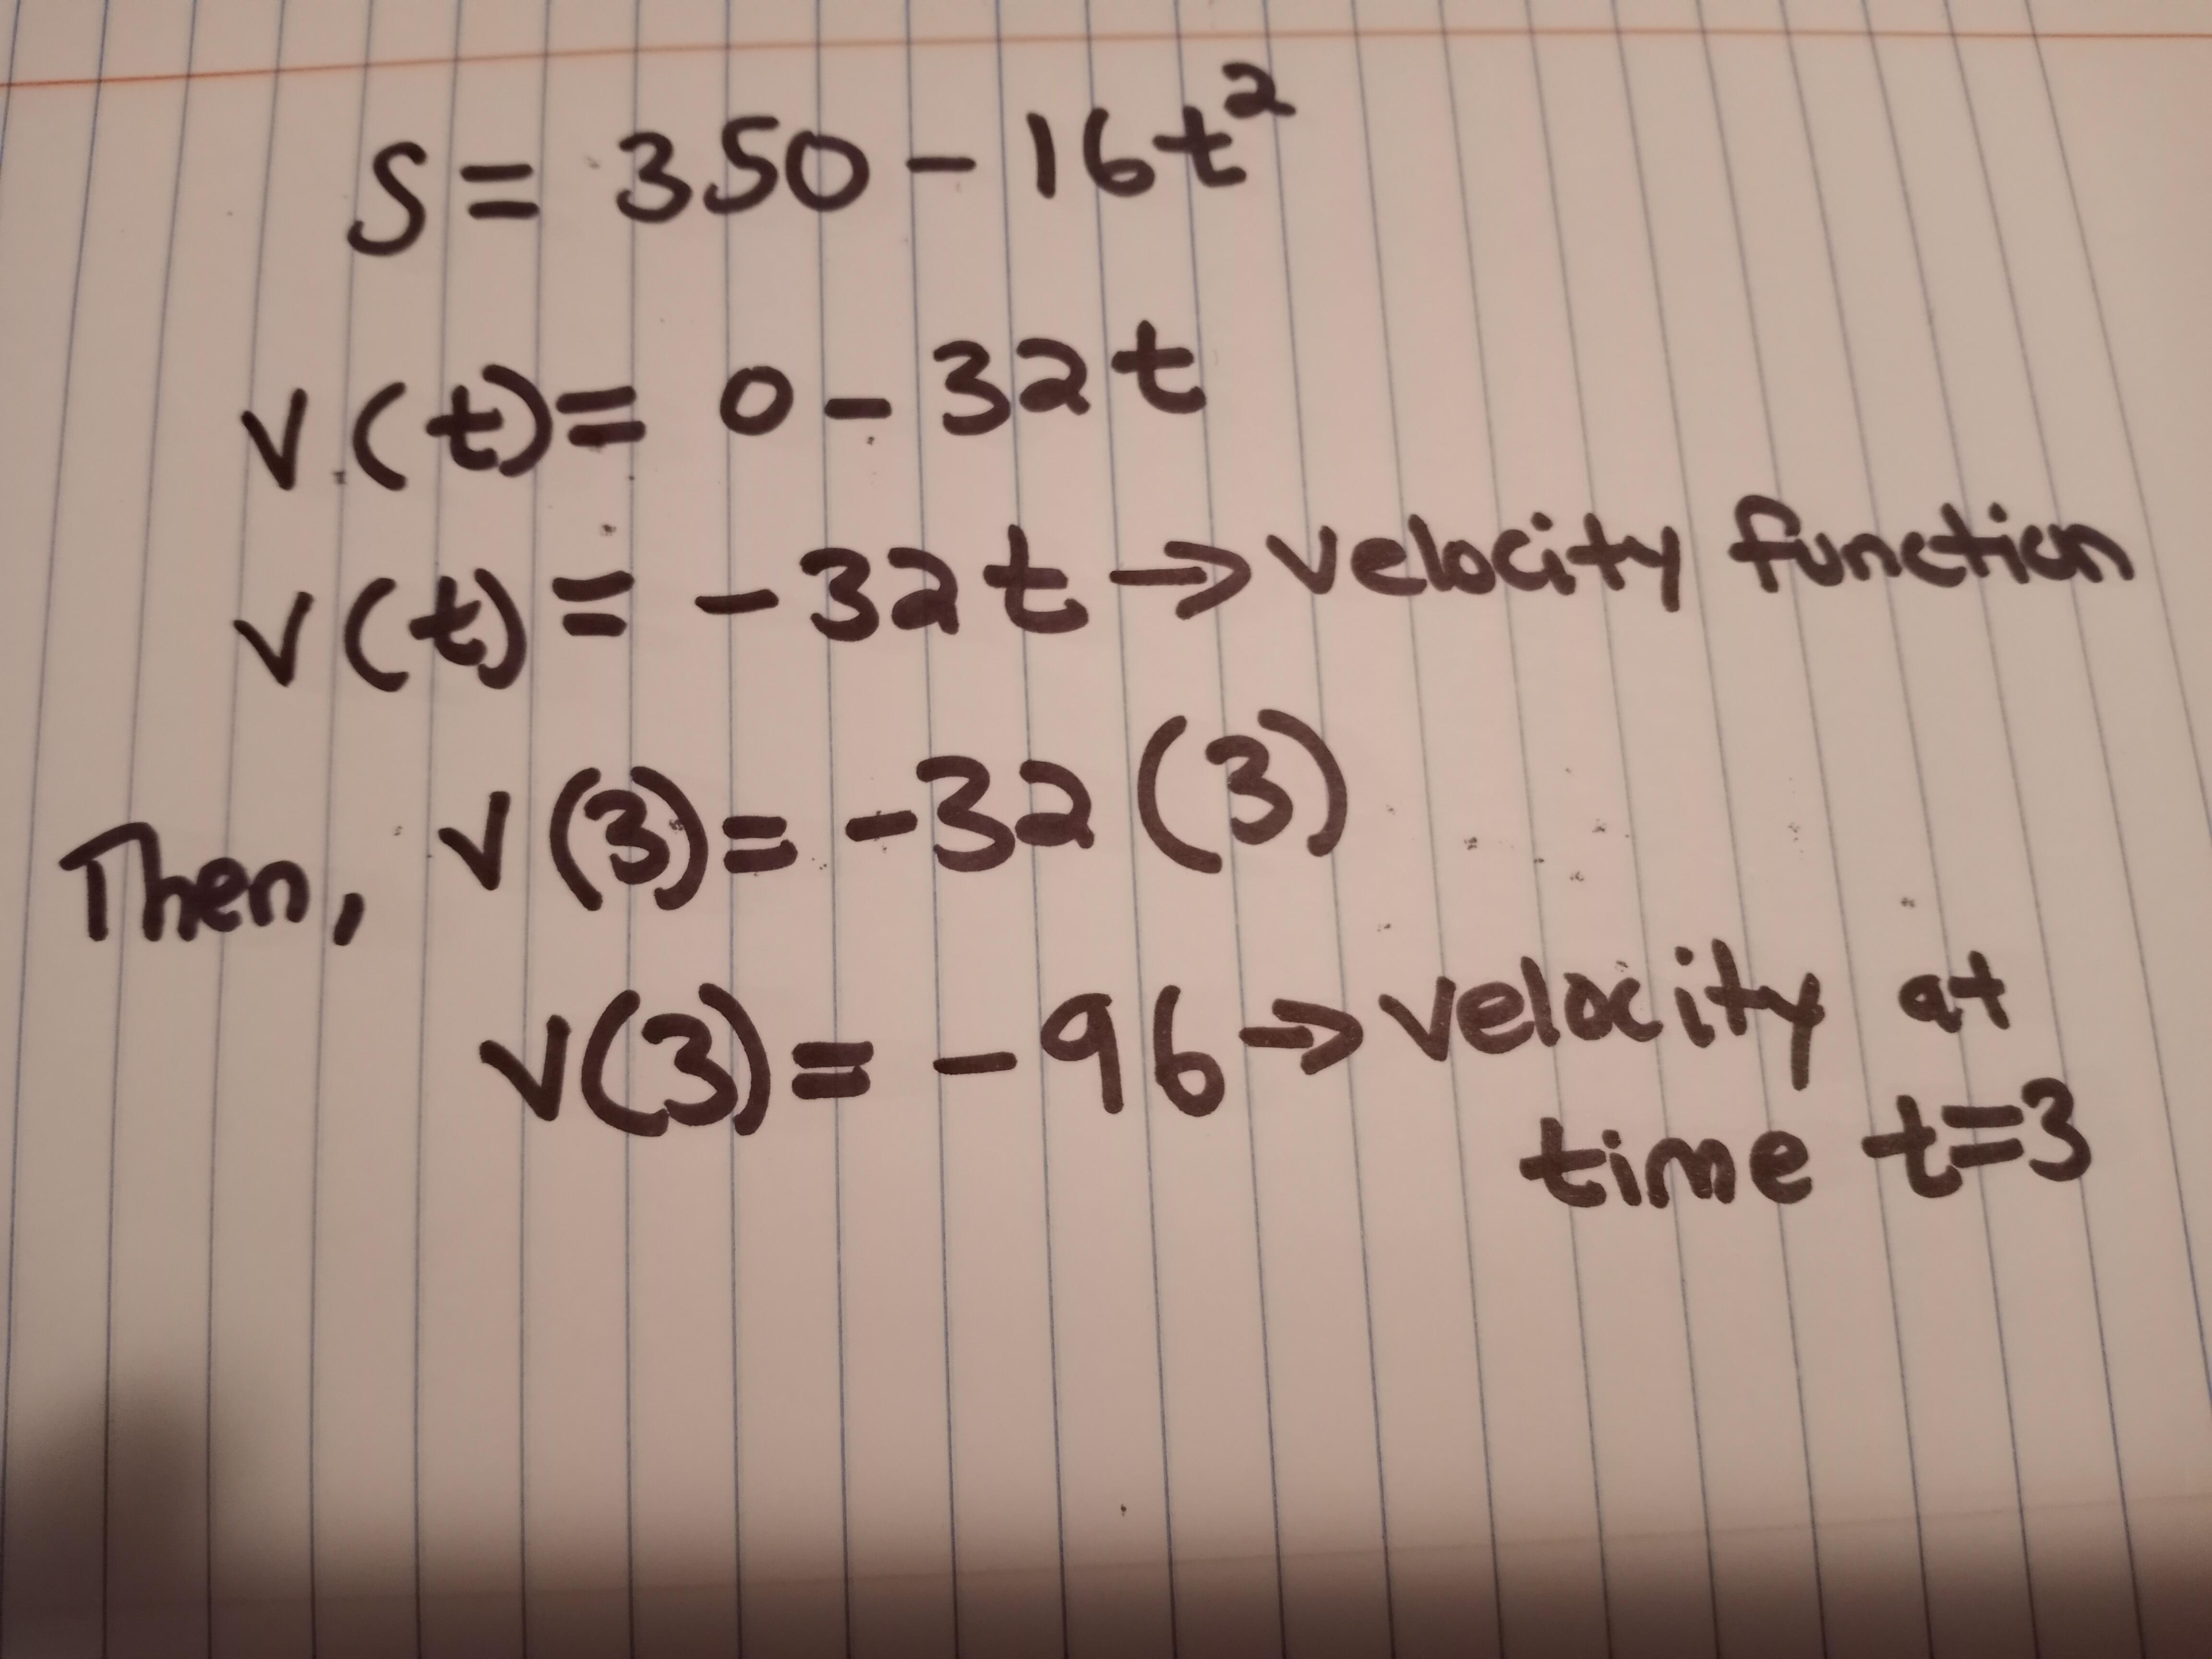 S = 350 - 16t²
v(t) = 0 - 32t
v(t) = -32t → velocity function
Then, v(3) = -32(3)
v(3) = -96 → velocity at
time t=3